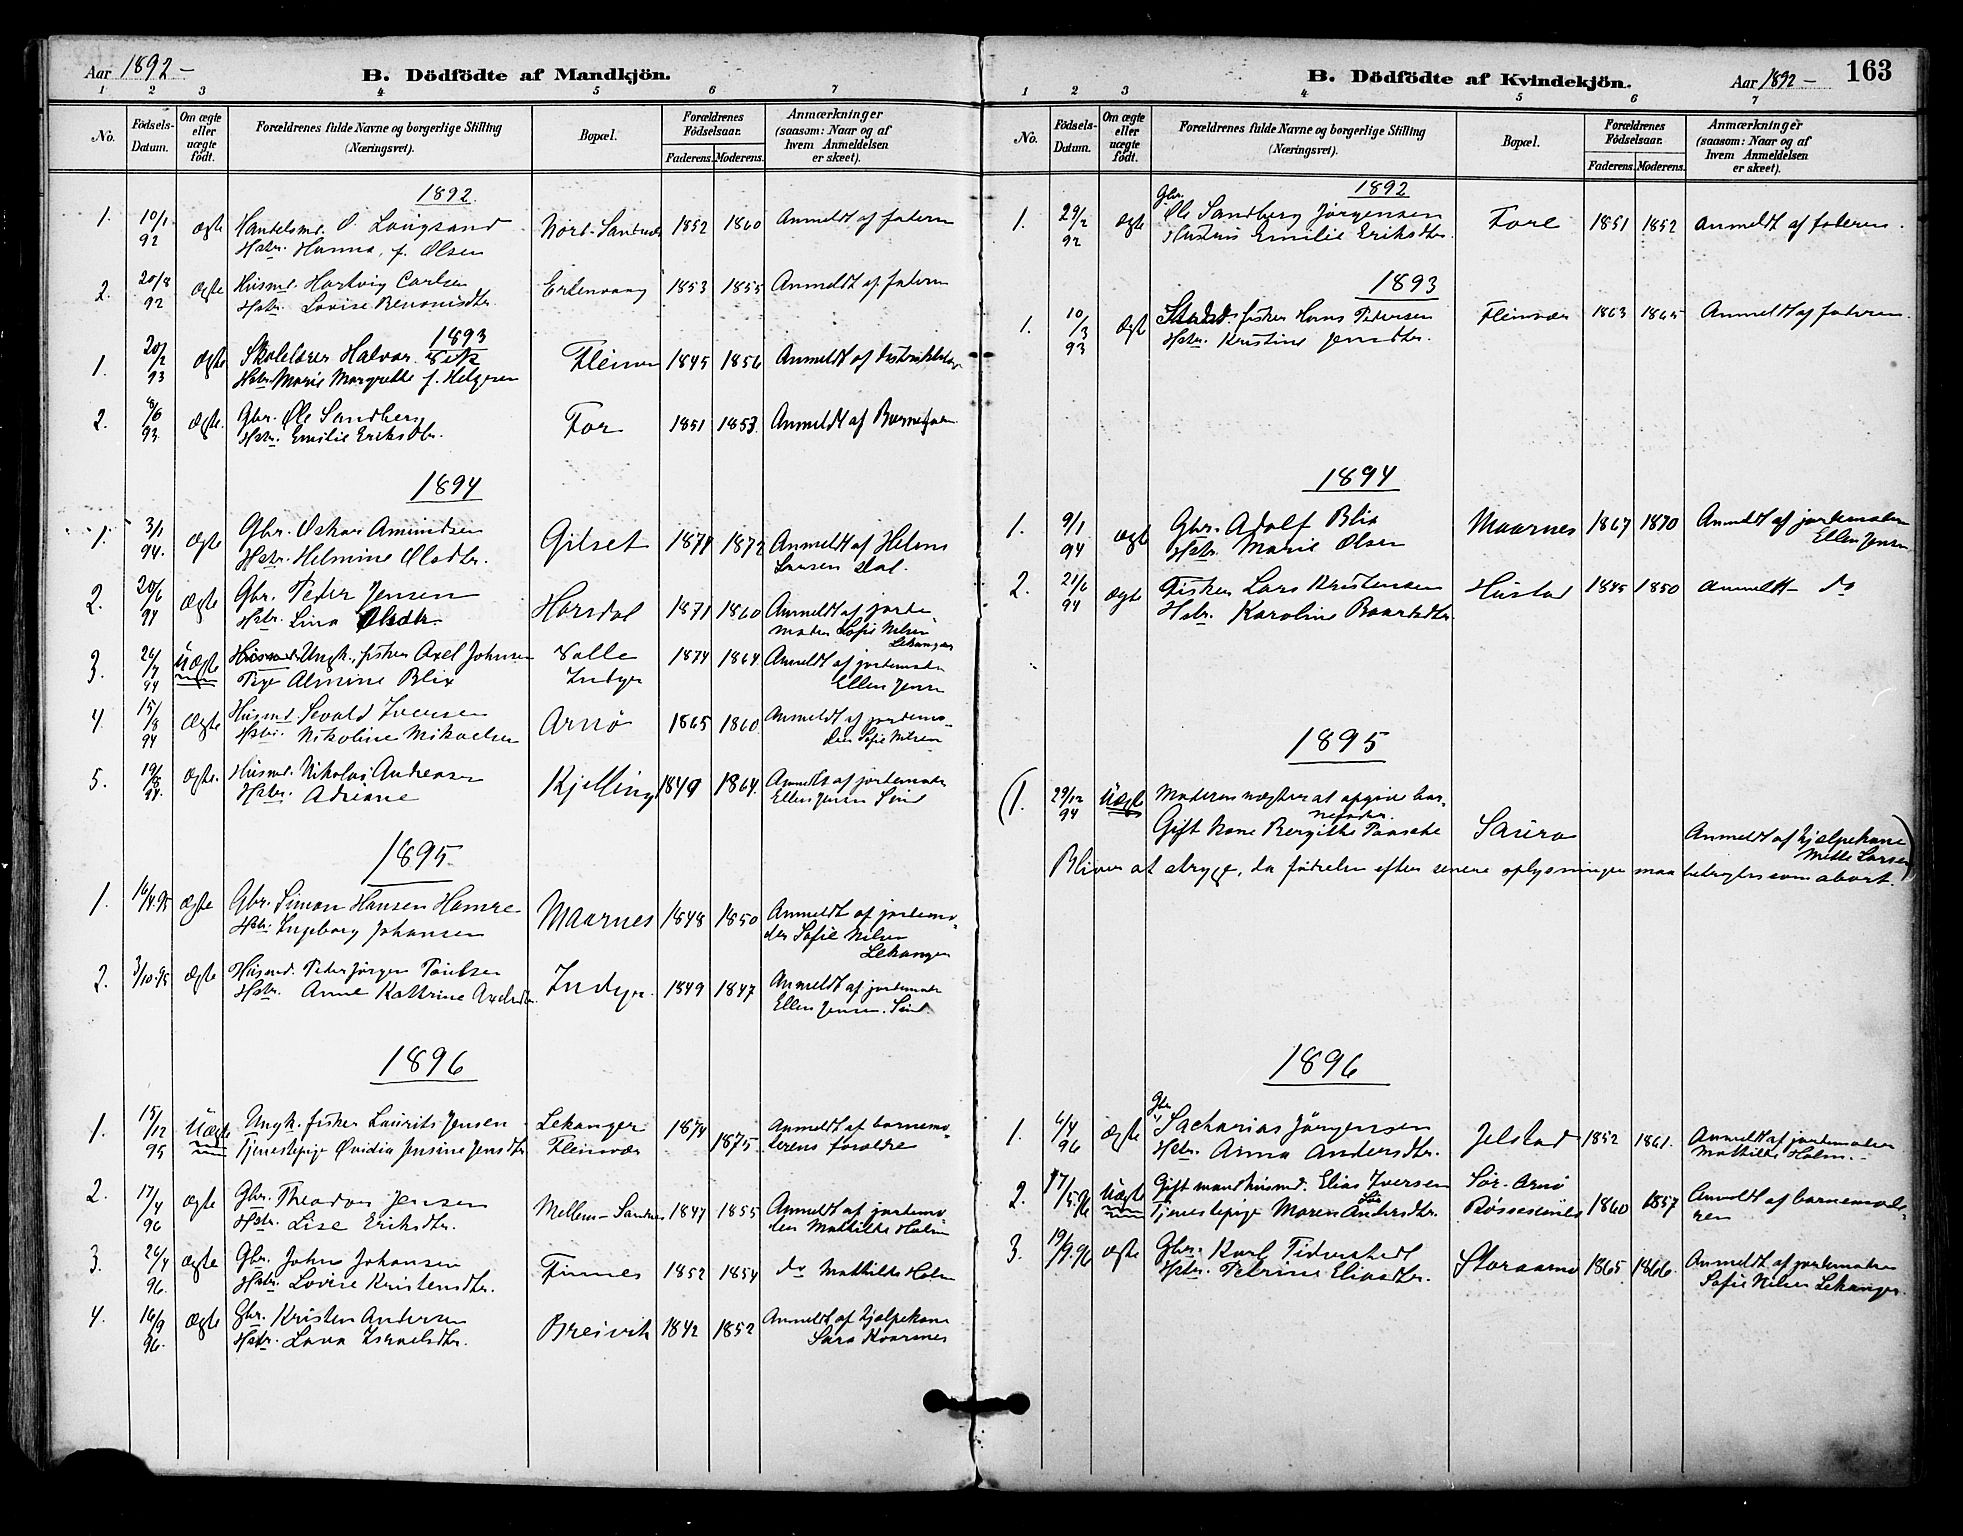 Aar 1892 –
B. Dödfödte af Mandkjön.
1 2 3 4 5 6 7
No.
Födsels-
Datum.
Om ægte
eller
uægte
födt.
Forældrenes fulde Navne og borgerlige Stilling
(Næringsvei).
Bopæl.
Forældrenes
Födselsaar.
Faderens. Moderens.
Anmærkninger
(saasom: Naar og af
hvem Anmeldelsen
er skeet).
1892
1. 10/1 92 ægte Handelsmd. O. Langsand Nord-Sandnes 1852 1860 Anmeldt af faderen
Hstr. Hanna, f. Olsen
2. 20/8 92 ægte Husmd. Hartvig Carlsen 1853 1855 Anmeldt af faderen
Hstr. Lovise Benonisdtr.
1893
1. 20/2 93 ægte Skolelærer Halvor 1845 1856 Anmeldt af
Hstr. Marie Margrethe f. Helgesen
2. 8/6 93 ægte Gbr. Ole Sandberg For 1851 1853. Anmeldt af Barnefaderen
Hstr. Emilie Eriksdtr.
1894
1. 3/1 94. ægte Gbr. Oskar Amundsen Gilset 1871 1872 Anmeldt af
Hstr. Helmine Olsdtr. Larsen
2. 20/6 94 ægte Gbr. Peder Jensen Horsdal 1871 1860 Anmeldt af jorde-
Hstr. Lina Olsdtr. moder Sofie Nilsen
Lekanger
3. 26/7 94 Uægte Ungk. fisker Axel Johnsen Valle 1874 1864 Anmeldt af jordemoder
Pige Almine Blix Indyr Ellen Jensen
4. 15/8 94 ægte Husmd. Sevald Iversen Arnö 1865 1860 Anmeldt af jordemo-
Hstr. Nikoline Mikaelsen der Sofie Nilsen
5. 19/8 94. ægte. Husmd. Nikolai Andreasen Kjelling 1849 1864. Anmeldt af jordemoder
Hstr. Adriane Ellen Jensen Sund
1895.
1. 16/4 95 ægte Gbr. Simon Hansen Hamre Maarnes 1848 1850 Anmeldt af jordemo-
Hstr. Ingeborg Johansen der Sofie Nilsen
Lekanger
2. 3/10 95 ægte Husmd. Peder Jörgen Paulsen Indyr. 1849 1847 Anmeldt af jordemoder
Hstr. Anne Katrine Axelsdtr. Ellen Jensen. Sund
1896
1. 15/12 95 Uægte Ungk. fisker Laurits Jensen Lekanger 1874 Anmeldt af barnemo-
Tjenestepige Ovidia Jensine Jensdtr. Fleinvær 1875. derens forældre
2. 17/4 96 ægte Gbr. Theodor Jensen Mellem-Sandnes 1847 1855 Anmeldt af jordemo-
Hstr. Lise Eriksdtr. der Mathilde Holm
3. 26/4 96. ægte Gbr. John Johansen Finnes 1852 1854 do Mathilde Holm
Hstr. Lovise Kristensdtr.
4. 16/9 96. ægte Gbr. Kristen Andersen Breivik 1842 1852 Anmeldt af hjælpekone
Hstr. Lava Israelsdtr. Sara Kvarsnes
B. Dödfödte af Kvindekjön.
Aar 1892 – 163
1 2 3 4 5 6 7
No.
Födsels-
Datum.
Om ægte
eller
uægte
födt.
Forældrenes fulde Navne og borgerlige Stilling
(Næringsvei).
Bopæl.
Forældrenes
Födselsaar.
Faderens. Moderens.
Anmærkninger
(saasom: Naar og af
hvem Anmeldelsen
er skeet).
1892
Gbr.
1. 29/2 92 ægte Ole Sandberg Jörgensen Fore 1851 1852 Anmeldt af faderen.
Hustru Emilie Eriksdtr.
1893
1. 10/3 93 ægte fisker Hans Pedersen Fleinvær 1863 1865 Anmeldt af faderen.
Hstr. Kristine Jensdtr.
1894
1. 9/1 94 ægte Gbr. Adolf Blix Maarnes 1867 1870 Anmeldt af jordemoder
Hstr. Marie Olsen Ellen Jensen
2. 21/6 94 ægte Fisker Lars Kristensen Hustad 1845 1850 anmeldt – do
Hstr. Karoline Baardsdtr.
1895
(1. 29/12 94 Uægte Moderen nægter at opgive bar-
nefader.
Gift kone Bergitte Paasche Saura Anmeldt af hjælpekone
Mette Larsen)
Bliver at stryge, da födselen efter senere oplysninger maa betragtes som abort.
1896
Gbr.
1. 6/4 96 ægte Sacharias Jörgensen Jelstad 1852 1861. Anmeldt af jordemoder
Hstr. Anna Andersdtr. Mathilde Holm. –
2. 17/5.96 Uægte Gift mand husmd. Elias Iversen Sör-Arnö
Tjenestepige Maren Andersdtr. 1860 1857 Anmeldt af barnemode-
ren
3. 19/9.96 ægte Gbr. Karl Tidemsted Storarnö 1865. 1866. Anmeldt af jordemoder
Hstr. Petrine Eliasdtr. Sofie Nilsen Lekanger.